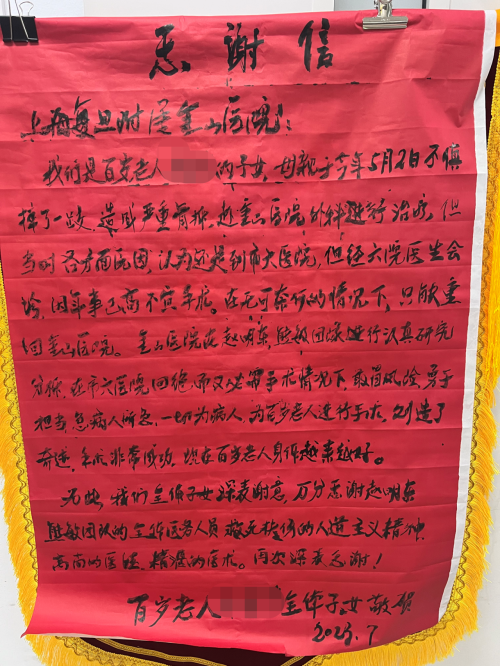 感谢信
上海复旦附属金山医院:
我们是百岁老人 的子女,母亲于今年5月2日不慎
摔了一跤,造成严重骨折。赴金山医院外科进行治疗,但
当时各方面原因,认为还是到市大医院,但经六院医生会
诊,因年事已高不宜手术。在无可奈何的情况下,只能重
回金山医院。金山医院在赵明东,熊敏团队进行认真研究
分析,在市六医院回绝而又必需手术情况下,敢冒风险,勇于
担当,急病人所急,一切为病人,为百岁老人进行手术,创造了
奇迹,手术非常成功,现在百岁老人身体越来越好。
为此,我们全体子女深表谢意,万分感谢赵明东
熊敏团队的全体医务人员救死扶伤的人道主义精神,
高尚的医德,精湛的医术。再次深表感谢!
百岁老人 全体子女敬贺
2023.7